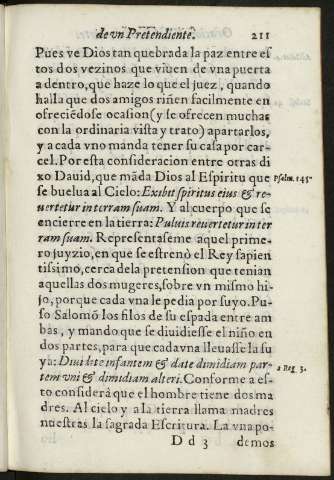 de vn Pretendiente. 211
Pues ve Dios tan quebrada la paz entre es
tos dos vezinos que viuen de vna puerta
a dentro, que haze lo que el juez, quando
halla que dos amigos riñen facilmente en
ofreciẽdose ocasion (y se ofrecen muchas
con la ordinaria vista y trato) apartarlos,
y a cada vno manda tener su casa por car-
cel. Por esta consideracion entre otras di
xo Dauid, que mãda Dios al Espiritu que Psalm. 145
se buelua al Cielo: Exibit spiritus eius & re-
uertetur in terram suam. Y al cuerpo que se
encierre en la tierra: Puluis reuertetur in ter
ram suam. Representaseme aquel prime-
ro juyzio, en que se estrenò el Rey sapien
tissimo, cerca de la pretension que tenian
aquellas dos mugeres, sobre vn mismo hi-
jo, porque cada vna le pedia por suyo. Pu-
so Salomõ los filos de su espada entre am
bas, y mando que se diuidiesse el niño en
dos partes, para que cada vna lleuasse la su
ya: Diuidite infantem & date dimidiam par-
tem vni & dimidiam alteri. Conforme a es- 2 Reg. 3.
to considerà que el hombre tiene dos ma
dres. Al cielo y a la tierra llama madres
nuestras la sagrada Escritura. La vna po-
D d 3 demos